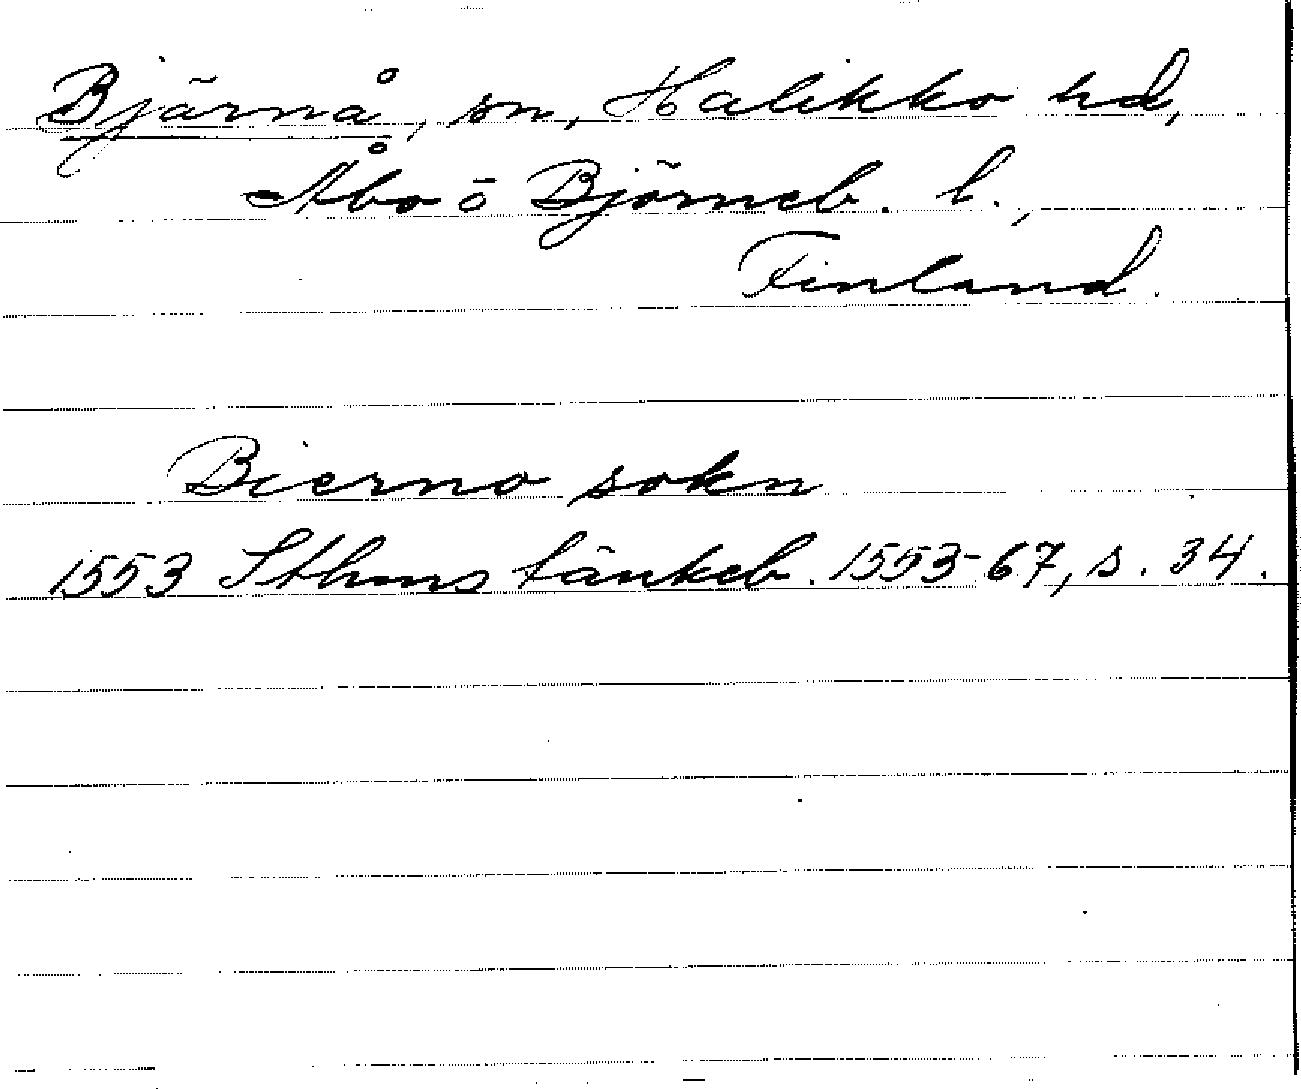 Bjärnå, sn, Halikko hd,
Åbo ö Björneb. l.,
Finland.
Bierno sokn
1553 Sthms tänkeb. 1553-67, s. 34.